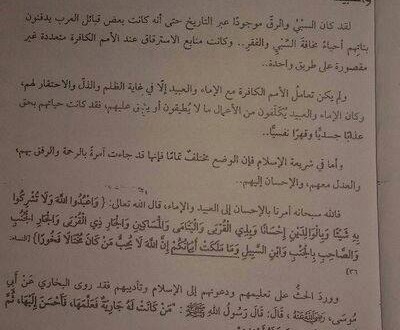 لقد كان السَّبْيُ والرقّ موجودًا عبر التاريخ حتى أنه كانت بعض قبائل العرب يدفنون
بناتِهم أحياءً مخافةَ السَّبْي والفقرِ.. وكانت منابع الاسترقاق عند الأمم الكافرة متعددة غير
مقصورة على طريق واحدة..
ولم يكن تعاملُ الأمم الكافرة مع الإماء والعبيد إلّا في غاية الظلم والذلّ والاحتقار لهم،
وكان الإماء والعبيد يُكلّفون من الأعمال ما لا يُطيقون أو يشق عليهم، فقد كانت حياتهم بحق
عذابًا جسديًا وقهرًا نفسيًّا..
وأما في شريعة الإسلام فإن الوضع مختلفٌ تمامًا فإنها قد جاءت آمرةً بالرحمة والرفق بهم،
والعدل معهم، والإحسان إليهم..
فالله سبحانه أمرنا بالإحسان إلى العبيد والإماء، قال الله تعالى: {وَاعْبُدُوا اللَّهَ وَلَا تُشْرِكُوا
بِهِ شَيْئًا وَبِالْوَالِدَيْنِ إِحْسَانًا وَبِذِي الْقُرْبَى وَالْيَتَامَى وَالْمَسَاكِينِ وَالْجَارِ ذِي الْقُرْبَى وَالْجَارِ الْجُنُبِ
وَالصَّاحِبِ بِالْجَنْبِ وَابْنِ السَّبِيلِ وَمَا مَلَكَتْ أَيْمَانُكُمْ إِنَّ اللَّهَ لَا يُحِبُّ مَنْ كَانَ مُخْتَالًا فَخُورًا} [النساء:
٣٦]
ووردَ الحثُّ على تعليمهم ودعوتهم إلى الإسلام وتأديبهم فقد روى البخاري عَنْ أَبِي
مُوسَى، رَضِيَ اللَّهُ عَنْهُ، قَالَ: قَالَ رَسُولُ اللهِ ﷺ: "مَنْ كَانَتْ لَهُ جَارِيَةٌ فَعَلَّمَهَا، فَأَحْسَنَ إِلَيْهَا، ثُمَّ